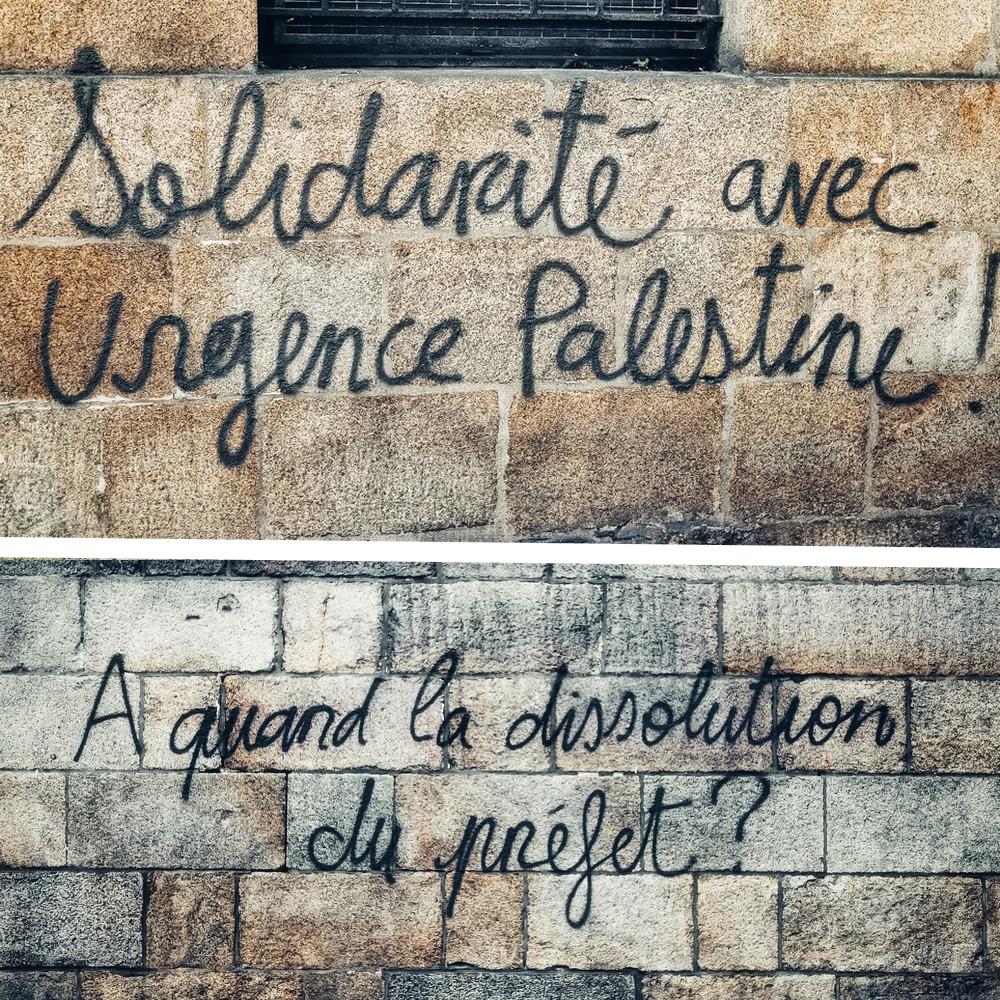 Solidarité avec
Urgence Palestine !
A quand la dissolution
du préfet ?